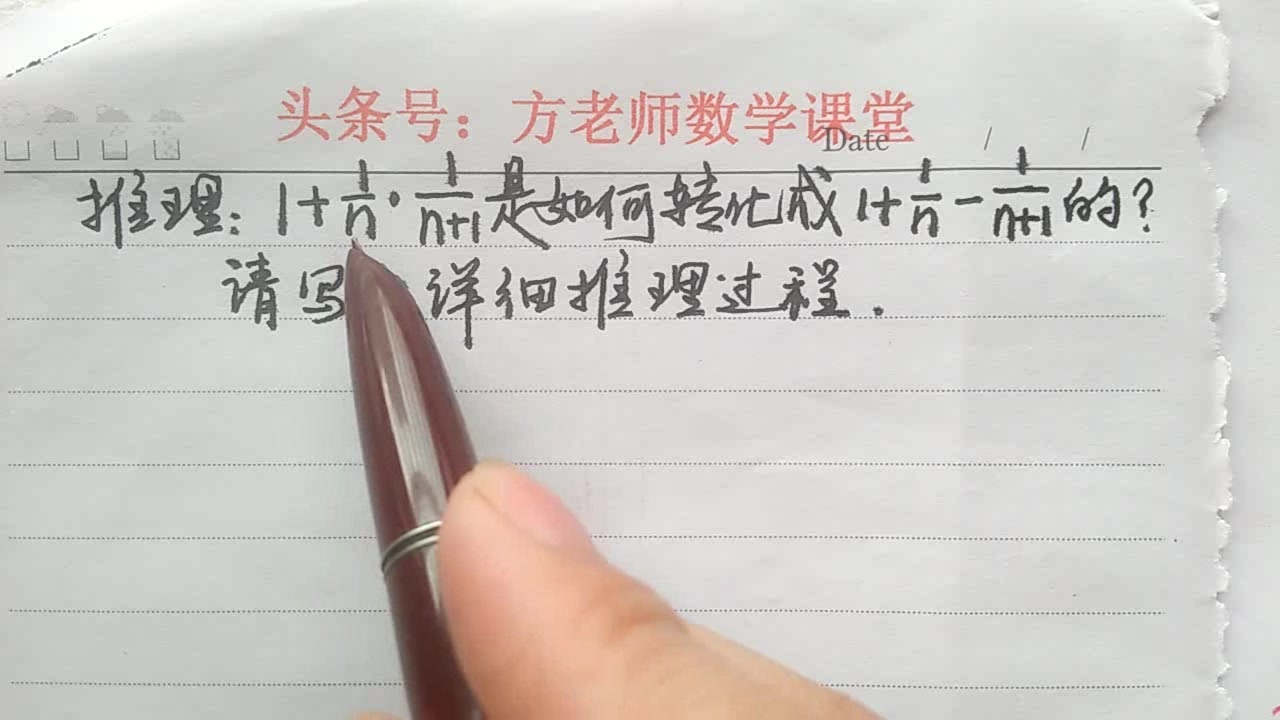 头条号：方老师数学课堂
Date / /
推理：1+1/n·1/n+1是如何转化成1+1/n-1/n+1的？
请写 详细推理过程．